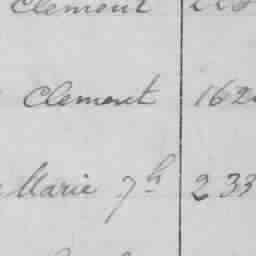 Clement
Clement 162
Marie Jh 233